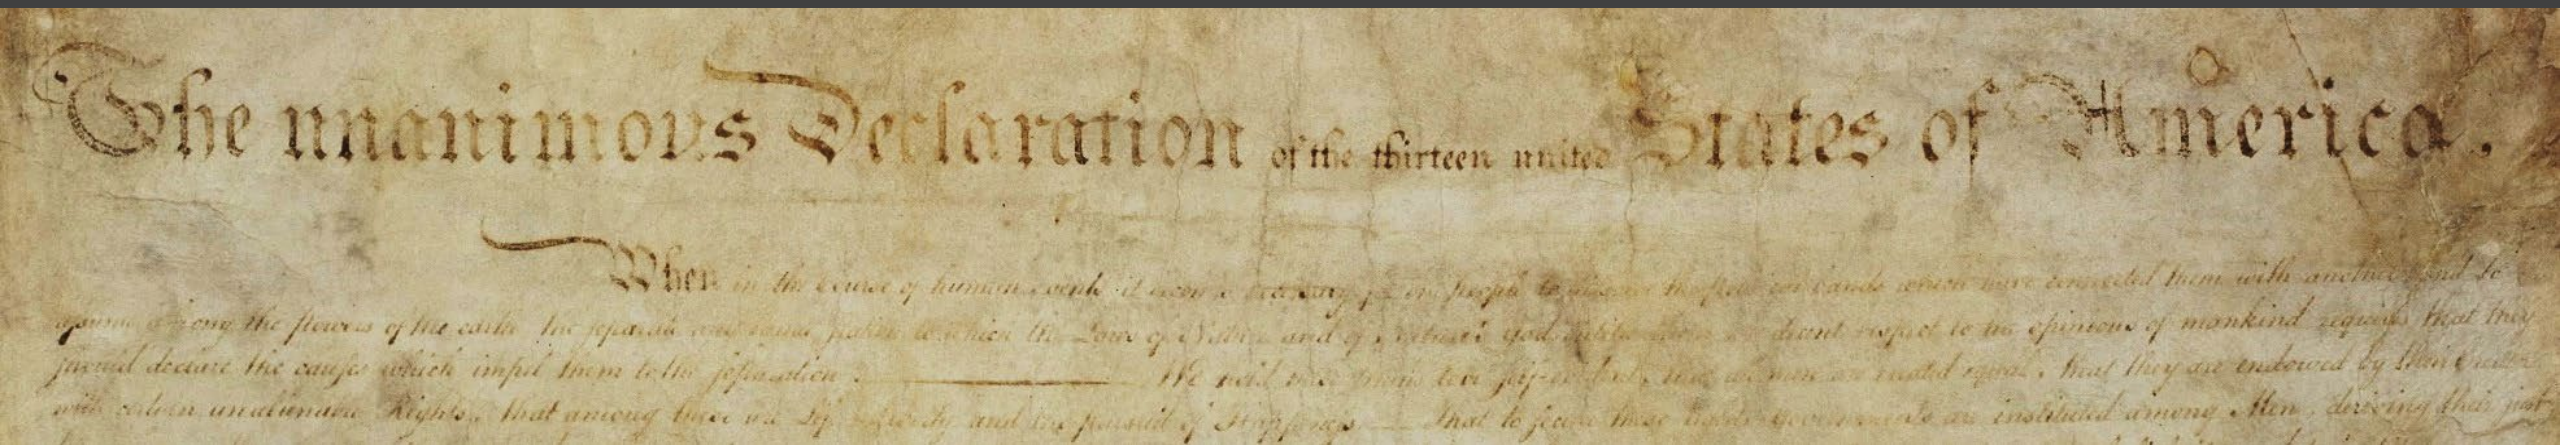 The unanimous Declaration of the thirteen united States of America.
When in the Course of human events it becomes necessary for one people to dissolve the political bands which have connected them with another and to
assume among the powers of the earth, the separate and equal station to which the Laws of Nature and of Nature's God entitle them, a decent respect to the opinions of mankind requires that they
should declare the causes which impel them to the separation. We hold these truths to be self-evident, that all men are created equal, that they are endowed by their Creator
with certain unalienable Rights, that among these are Life, Liberty and the pursuit of Happiness. That to secure these rights, Governments are instituted among Men, deriving their just